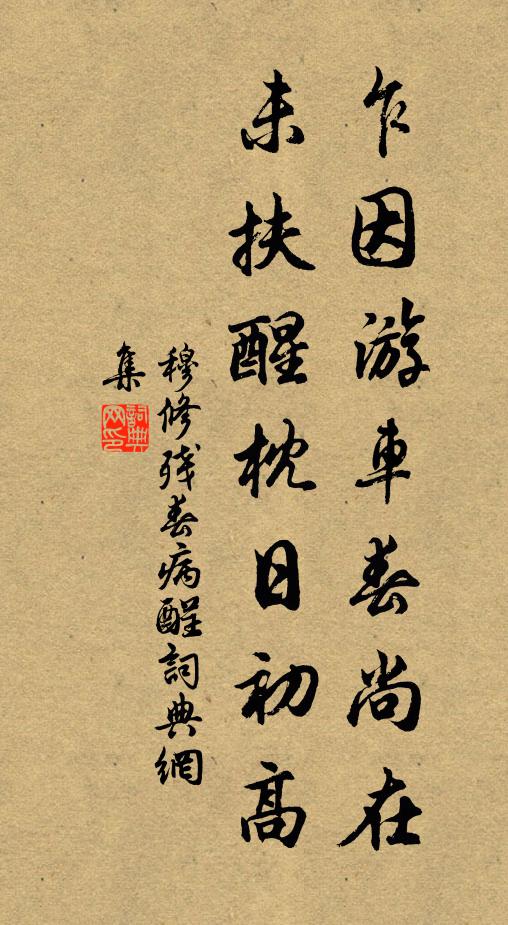 乍因游車春尚在
未扶醒枕日初高
穆修殘春病醒詞典網
集
詞典
网印